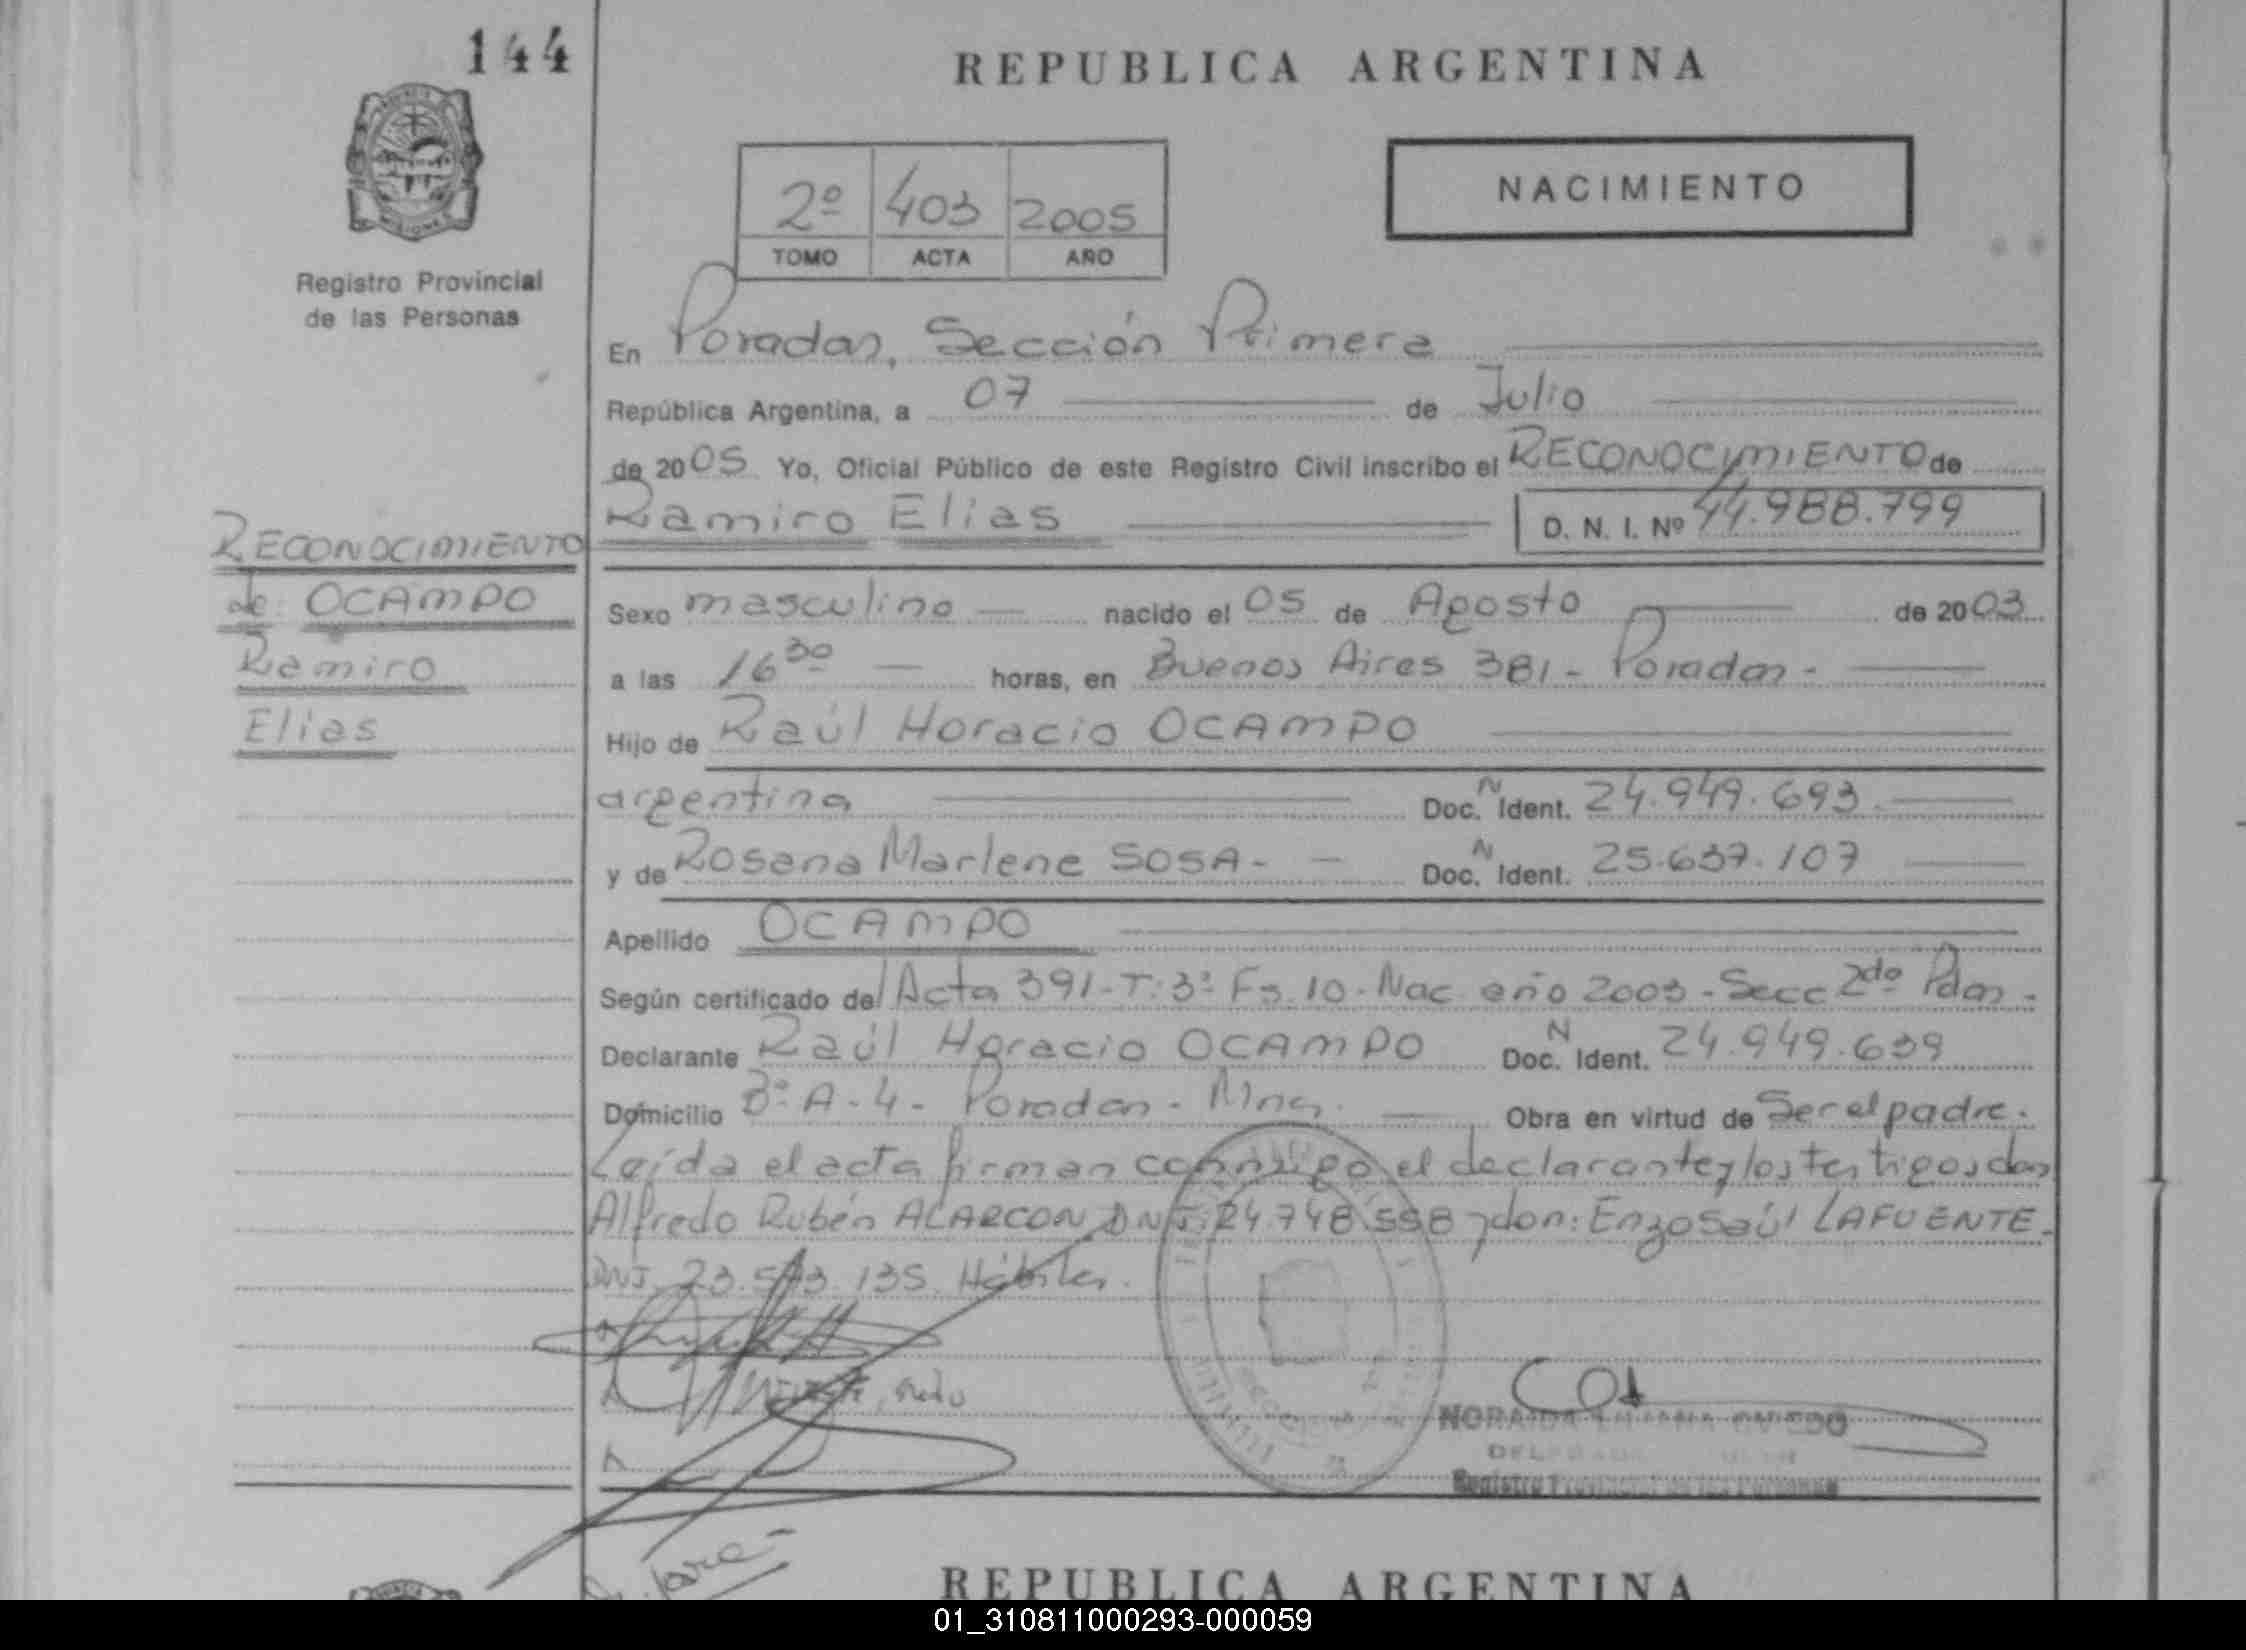 144
REPUBLICA ARGENTINA
NACIMIENTO
2º 403 2005
TOMO ACTA AÑO
Registro Provincial
de las Personas
En Posadas, Sección Primera
República Argentina, a 07 de Julio
de 2005 Yo, Oficial Público de este Registro Civil inscribo el RECONOCIMIENTO de
Ramiro Elias D. N. I. Nº 44.988.799
RECONOCIMIENTO
de: OCAMPO
Ramiro
Elias
Sexo masculino nacido el 05 de Agosto de 2003
a las 16 30 horas, en Buenos Aires 381 - Posadas -
Hijo de Raúl Horacio OCAMPO
argentina Doc. N Ident. 24.949.693
y de Rosana Marlene SOSA - Doc. N Ident. 25.637.107
Apellido OCAMPO
Según certificado del Acta 391 - T: 3º Fs. 10 - Nac. año 2003 - Secc 2da Pdas -
Declarante Raúl Horacio OCAMPO Doc. N Ident. 24.949.639
Domicilio A - 4 - Posadas - Mnes. Obra en virtud de Ser el padre.
Leída el acta firman conmigo el declarante y los testigos don
Alfredo Rubén ALARCON DNI: 24.748.558 y don: Enzo Saúl LAFUENTE -
DNI. 23.513.135. Hábiles.
NORAIDA
Registro Provincial de las Personas
REPUBLICA ARGENTINA
01_310811000293-000059